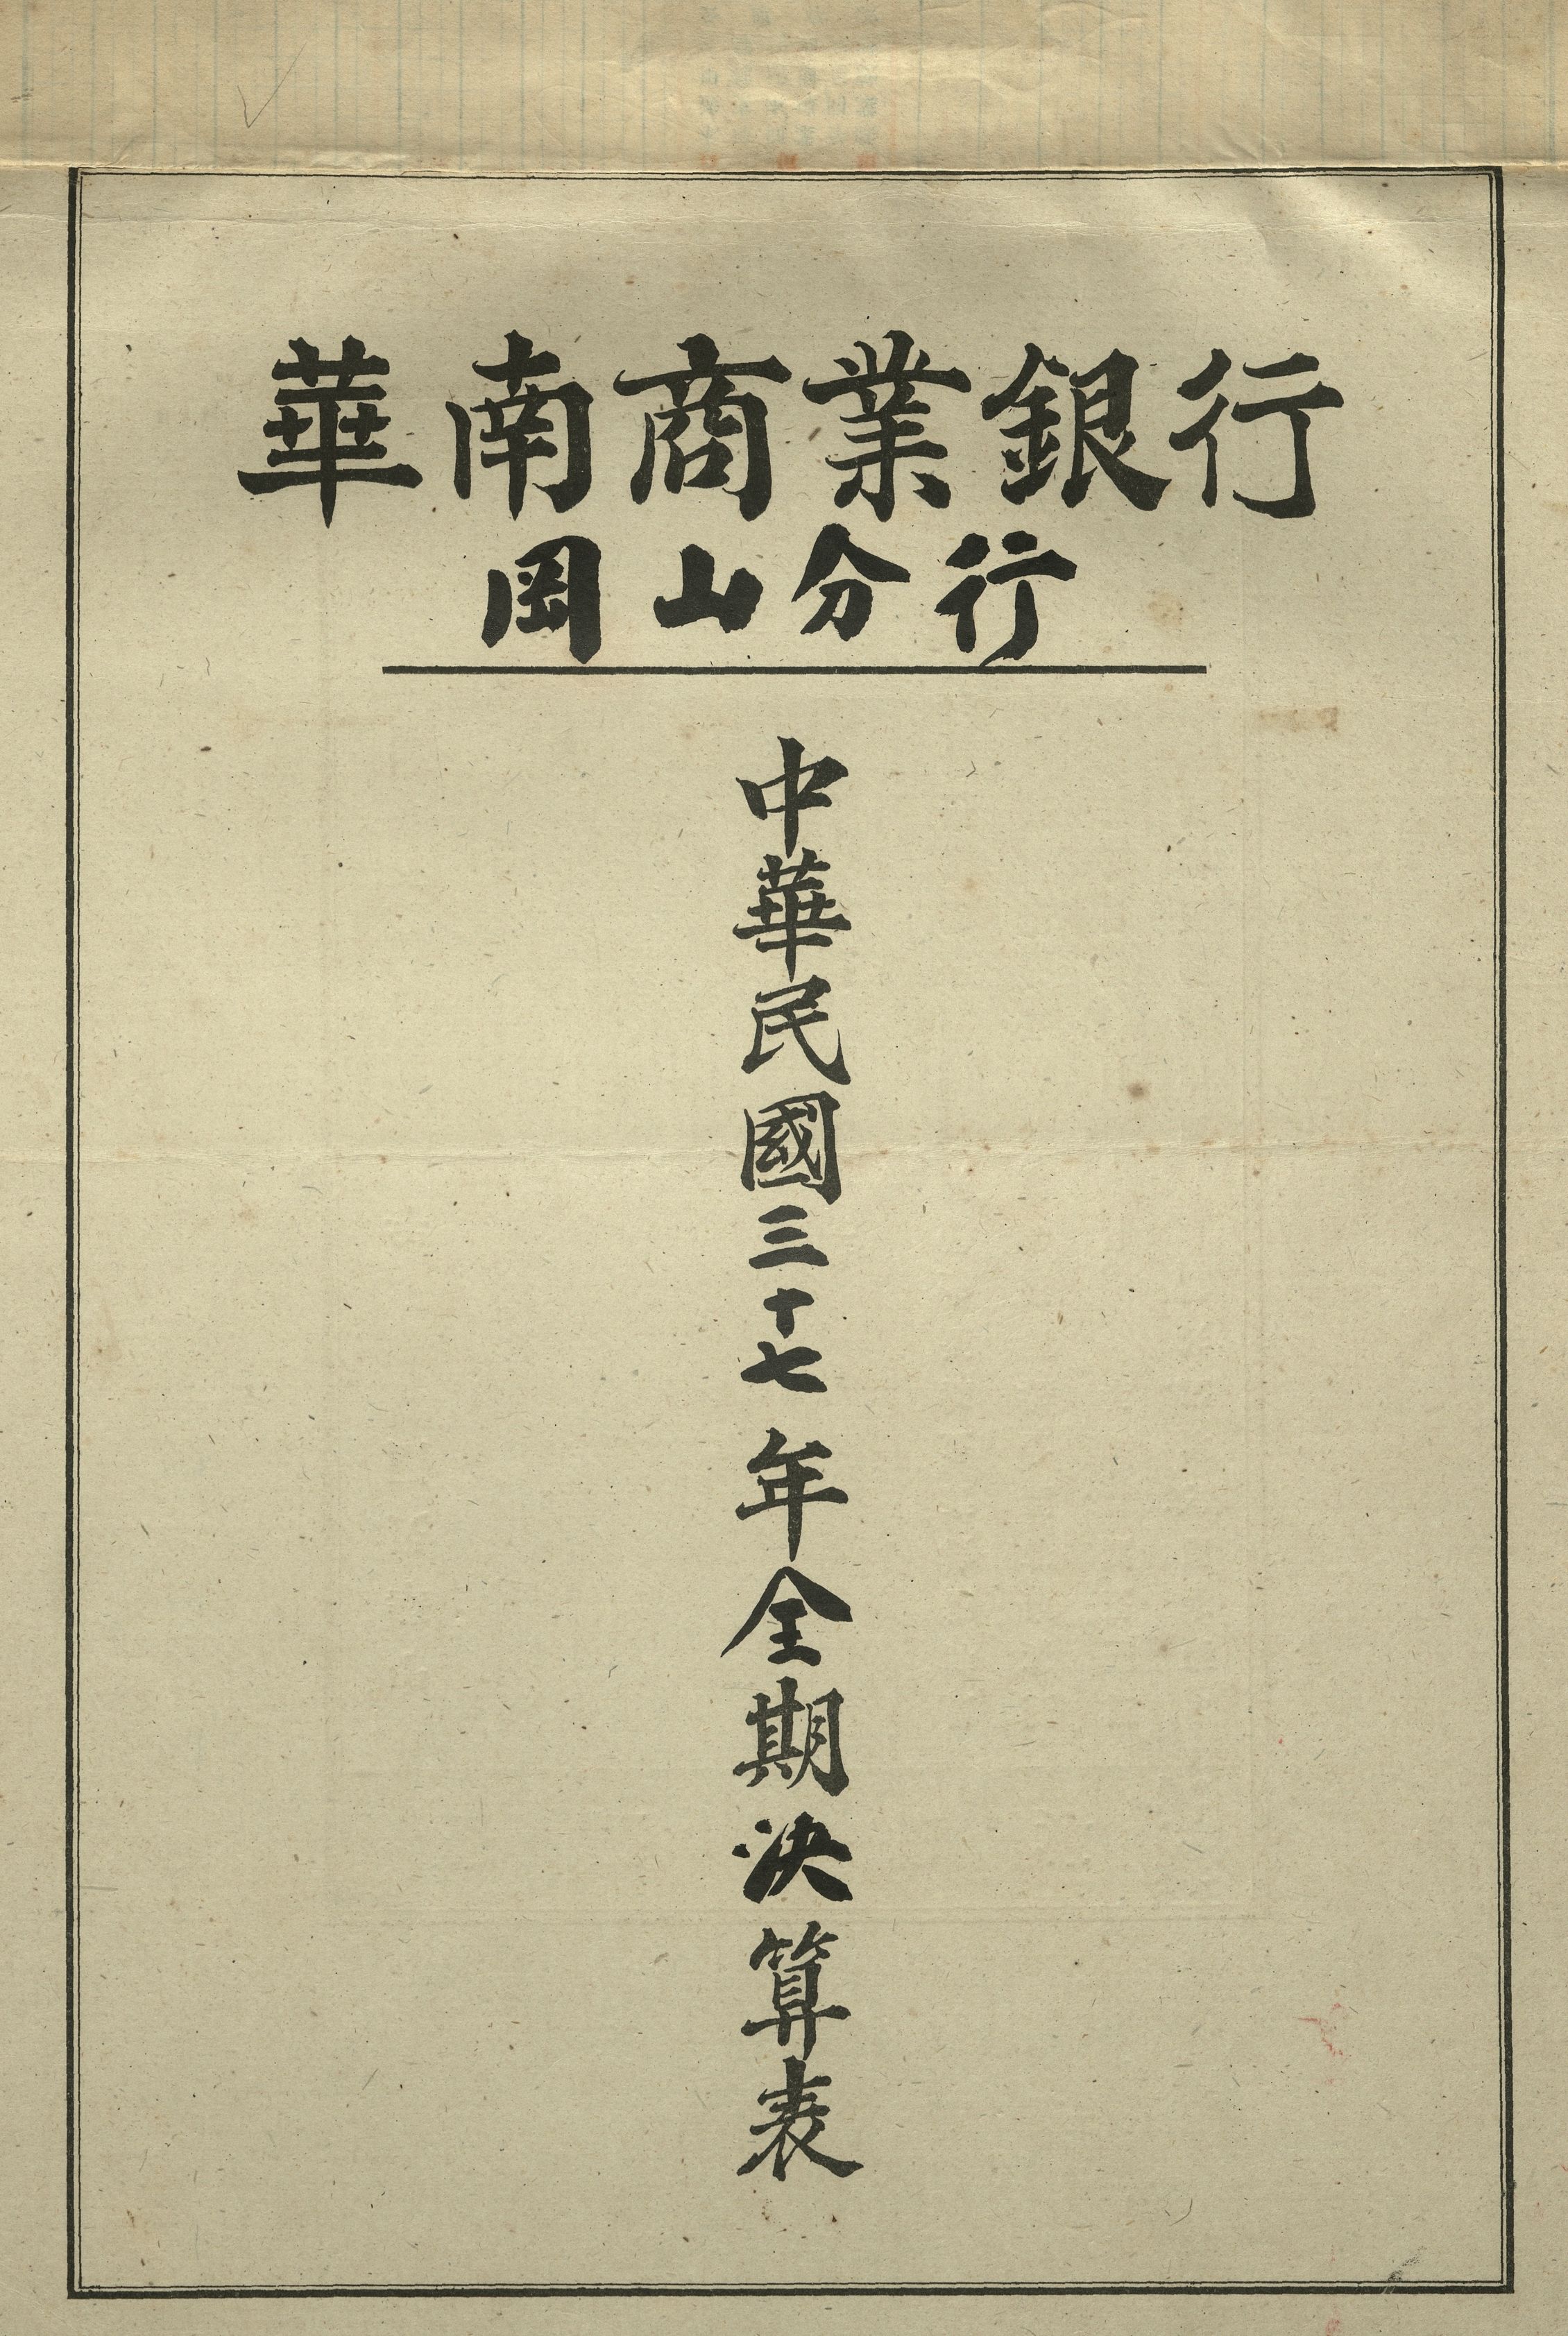 華南商業銀行
岡山分行
中華民國三十七年全期決算表